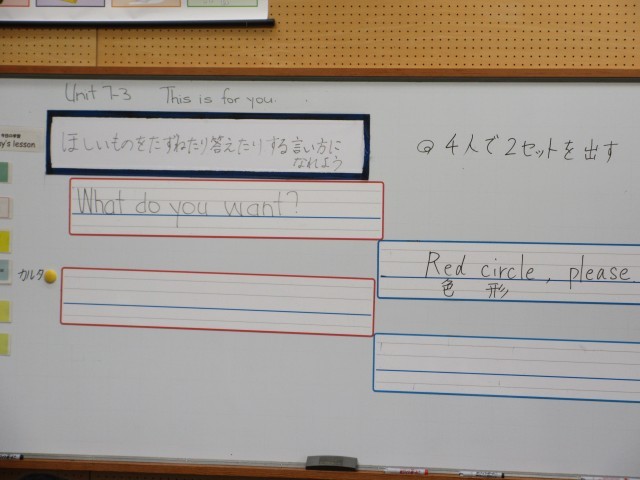 Unit 7-3 This is for you.
今日の学習
y's lesson
ほしいものをたずねたり答えたりする言い方に
なれよう
Q 4人で2セットを出す
What do you want?
Red circle, please.
色 形
カルタ